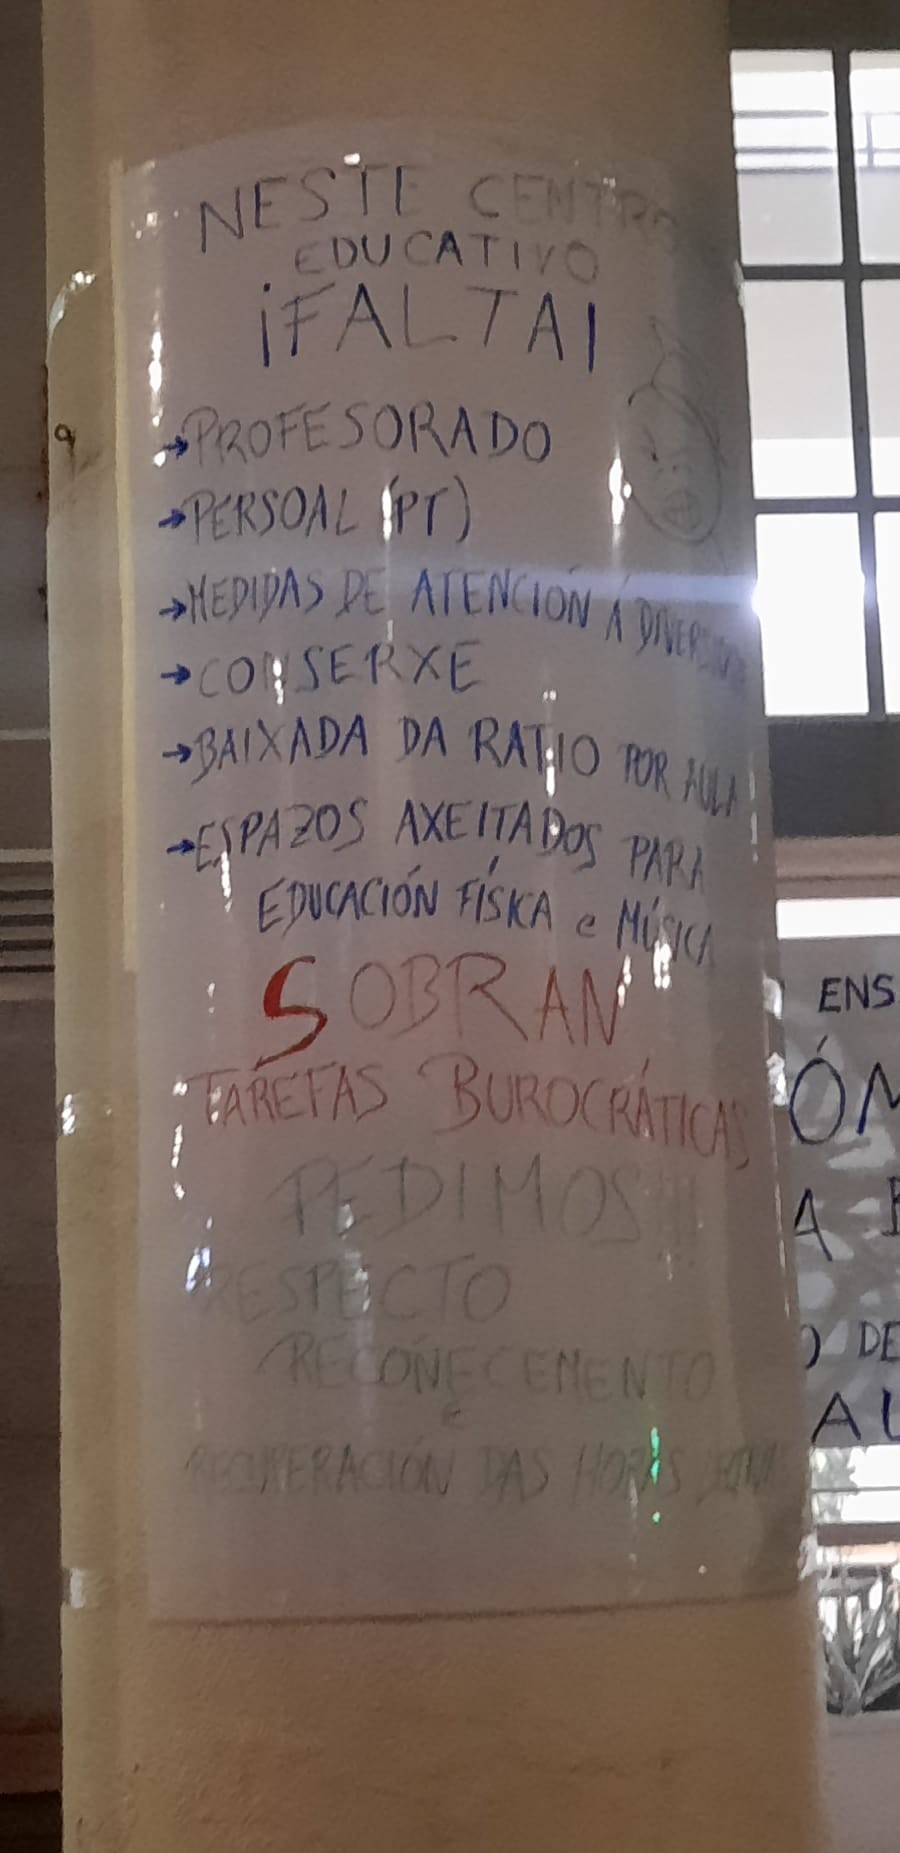 NESTE CENTRO
EDUCATIVO
¡FALTA!
→PROFESORADO
→PERSOAL (PT)
→MEDIDAS DE ATENCIÓN Á DIVERSIDADE
→CONSERXE
→BAIXADA DA RATIO POR AULA
→ESPAZOS AXEITADOS PARA
EDUCACIÓN FÍSICA e MÚSICA
SOBRAN
TAREFAS BUROCRÁTICAS
PEDIMOS!!!
RESPECTO
RECOÑECEMENTO
e
RECUPERACIÓN DAS HORAS
ENS
ÓN
A
DE